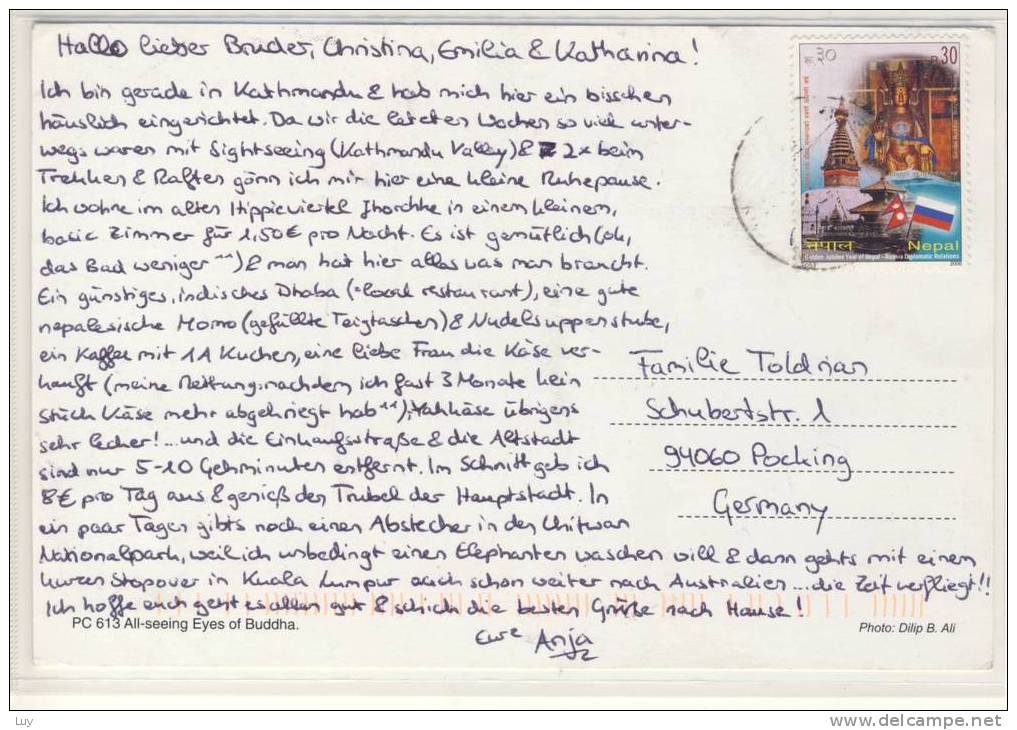 Hallo lieber Bruder, Christina, Emilia & Katharina!
Ich bin gerade in Kathmandu & hab mich hier ein bisschen
häuslich eingerichtet. Da wir die letzten Wochen so viel unter-
wegs waren mit Sightseeing (Kathmandu Valley) & 2x beim
Trekken & Raften gönn ich mir hier eine kleine Ruhepause.
Ich wohne im alten Hippieviertel Jhochhe in einem kleinem,
basic Zimmer für 1,50€ pro Nacht. Es ist gemütlich (ok,
das Bad weniger ^^) & man hat hier alles was man braucht.
Ein günstiges, indisches Dhaba (=local restaurant), eine gute
nepalesische Momo (gefüllte Teigtaschen) & Nudelsuppenstube,
ein Kaffee mit 1A Kuchen, eine liebe Frau die Käse ver-
kauft (meine Rettung: nachdem ich fast 3 Monate kein
Stück Käse mehr abgekriegt hab ^^), Yakkäse übrigens
sehr lecker! ... und die Einkaufsstraße & die Altstadt
sind nur 5-10 Gehminuten entfernt. Im Schnitt geb ich
8€ pro Tag aus & genieß den Trubel der Hauptstadt. In
ein paar Tagen gibts noch einen Abstecher in den Chitwan
Nationalpark, weil ich unbedingt einen Elephanten waschen will & dann gehts mit einem
kurzen Stopover in Kuala Lumpur auch schon weiter nach Australien ... die Zeit verfliegt!!
Ich hoffe euch geht es allen gut & schick die besten Grüße nach Hause!
Eure Anja
रु ३०
R 30
नेपाल Nepal
Golden Jubilee Year of Nepal - Russia Diplomatic Relations
2006
Familie Toldrian
Schubertstr. 1
94060 Pocking
Germany
PC 613 All-seeing Eyes of Buddha.
Photo: Dilip B. Ali
Luy
www.delcampe.net